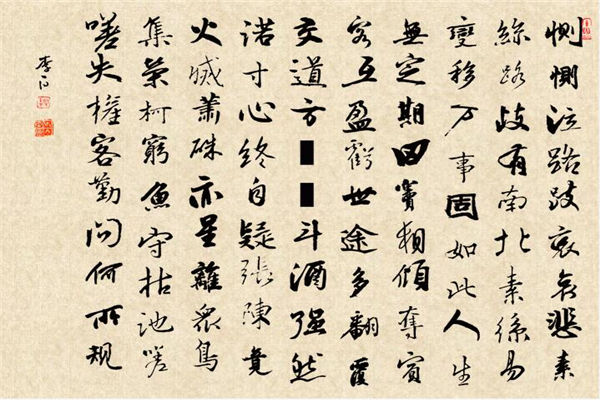 惻惻泣路歧哀哀悲素
絲路歧有南北素絲易
變移万事固如此人生
無定期田竇相傾奪賓
客互盈虧世途多翻覆
交道方■■斗酒强然
諾寸心終自疑張陳竟
火滅蕭硃亦星離眾鳥
集榮柯窮魚守枯池嗟
嗟失權客勤问何所規
李白